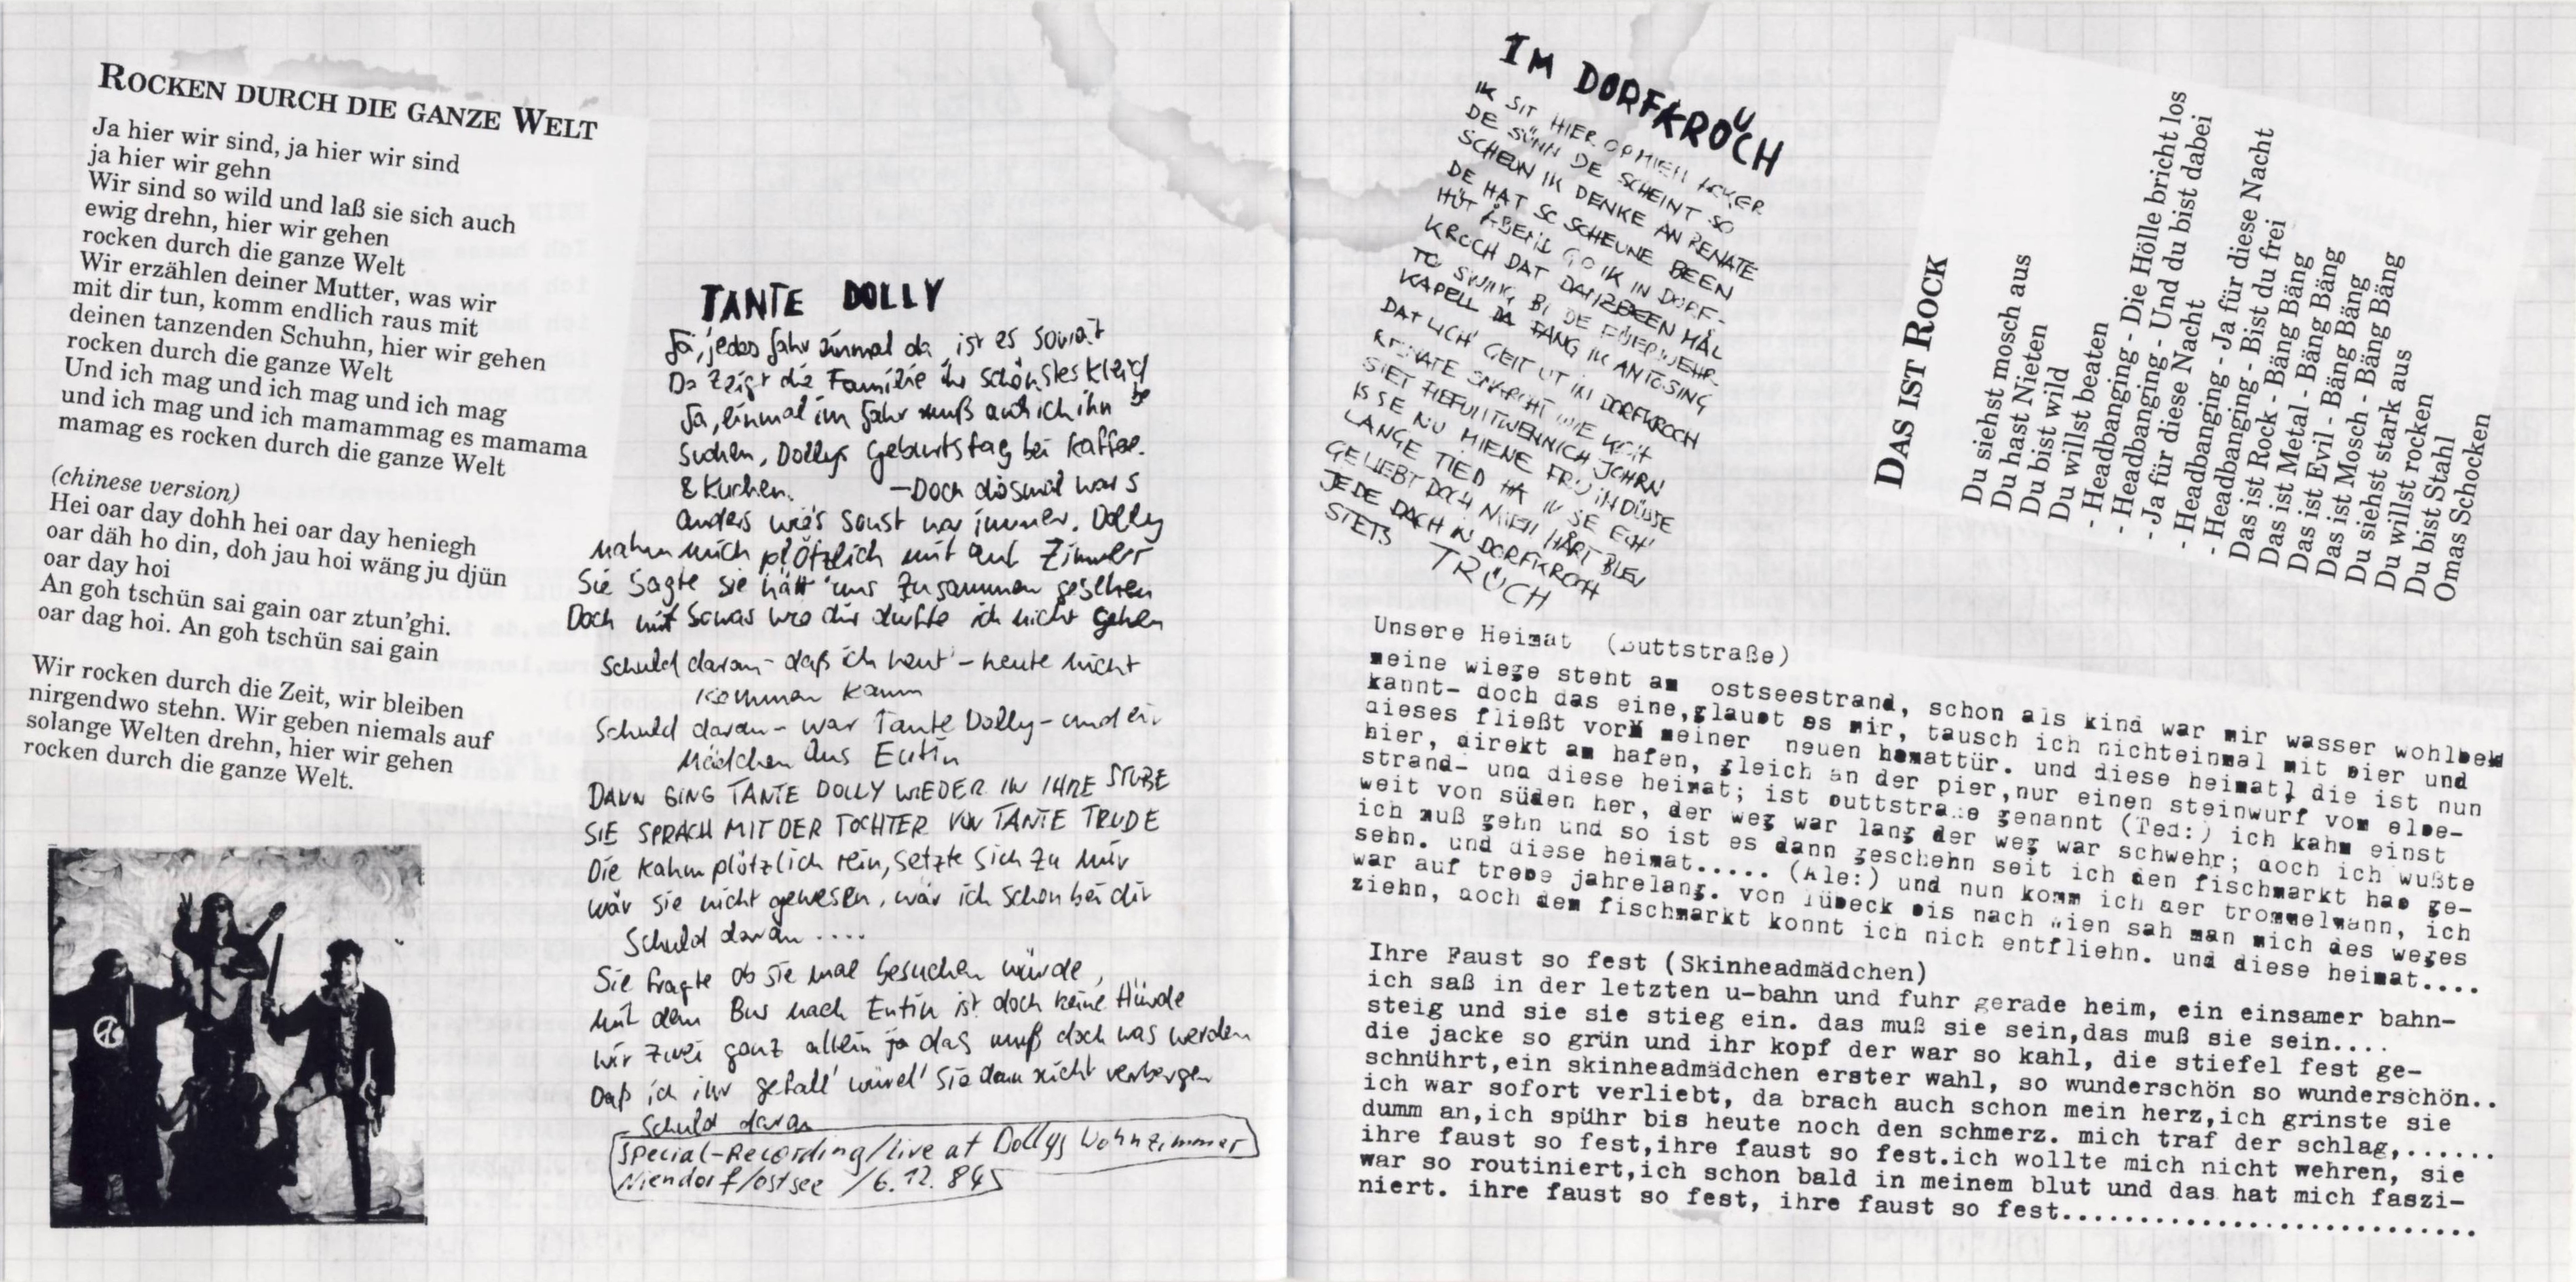 ROCKEN DURCH DIE GANZE WELT
Ja hier wir sind, ja hier wir sind
ja hier wir gehn
Wir sind so wild und laß sie sich auch
ewig drehn, hier wir gehen
rocken durch die ganze Welt
Wir erzählen deiner Mutter, was wir
mit dir tun, komm endlich raus mit
deinen tanzenden Schuhn, hier wir gehen
rocken durch die ganze Welt
Und ich mag und ich mag und ich mag
und ich mag und ich mamammag es mamama
mamag es rocken durch die ganze Welt
(chinese version)
Hei oar day dohh hei oar day heniegh
oar däh ho din, doh jau hoi wäng ju djün
oar day hoi
An goh tschün sai gain oar ztun'ghi.
oar dag hoi. An goh tschün sai gain
Wir rocken durch die Zeit, wir bleiben
nirgendwo stehn. Wir geben niemals auf
solange Welten drehn, hier wir gehen
rocken durch die ganze Welt.
TANTE DOLLY
Ja, jedes Jahr einmal da ist es soweit
Da zeigt die Familie ihr schönstes Kleid
Ja, einmal im Jahr muß auch ich ihn be
suchen, Dollys Geburtstag bei Kaffee.
& Kuchen. — Doch diesmal war's
anders wie's sonst war immer. Dolly
nahm mich plötzlich mit auf Zimmer
Sie sagte sie hätt' uns zusammen gesehen
Doch mit sowas wie dir dürfte ich nicht gehen
Schuld daran - daß ich heut' - heute nicht
kommen kann
Schuld daran - war Tante Dolly - und ein
Mädchen aus Eutin
DANN GING TANTE DOLLY WIEDER IN IHRE STUBE
SIE SPRACH MIT DER TOCHTER VON TANTE TRUDE
Die kahm plötzlich rein, setzte sich zu mir
wär sie nicht gewesen, wär ich schon bei dir
Schuld daran ....
Sie fragte ob sie mal besuchen würde,
mit dem Bus nach Eutin ist doch keine Hürde
wir zwei ganz allein ja das muß doch was werden
Daß ich ihr gefall' würd' sie dann nicht verbergen
- Schuld daran
Special-Recording/live at Dollys Wohnzimmer
Niendorf/ostsee /6.12.845
IM DORFKRÖÜCH
IK SIT HIER OP MIEN ACKER
DE SÜNN DE SCHEINT SO
SCHEUN IK DENKE AN RENATE
DE HAT SO SCHEUNE BEEN
HÜT ÅBEND GO IK IN DORF-
KROCH DAT DANZBEEN MÅL
TO SWING BI DE FÜERWEHR-
KAPELL DA FANG IK AN TO SING
DAT LICH' GEIT UT IN DORFKROCH
RENATE SNARCHT WIE WILT
SIET FIEFUNTWENNICH JOHRN
IS SE NU MIENE FRÜNDÜSSE
LANGE TIED HA IK SE ECH'
GELIEBT DOCH MIEN HÅRT BLEV
JEDE DACH IN DORFKROCH
STETS
TRÜCH
DAS IST ROCK
Du siehst mosch aus
Du hast Nieten
Du bist wild
Du willst beaten
- Headbanging - Die Hölle bricht los
- Headbanging - Und du bist dabei
- Ja für diese Nacht
- Headbanging - Ja für diese Nacht
- Headbanging - Bist du frei
Das ist Rock - Bäng Bäng
Das ist Metal - Bäng Bäng
Das ist Evil - Bäng Bäng
Das ist Mosch - Bäng Bäng
Du siehst stark aus
Du willst rocken
Du bist Stahl
Omas Schocken
Unsere Heimat (Buttstraße)
meine wiege steht am ostseestrand, schon als kind war mir wasser wohlbek
kannt- doch das eine,glaubt es mir, tausch ich nichteinmal mit bier und
dieses fließt vorm meiner neuen hemattür. und diese heimat} die ist nun
hier, direkt am hafen, gleich an der pier,nur einen steinwurf vom elbe-
strand- und diese heimat; ist buttstraße genannt (Ted:) ich kahm einst
weit von süden her, der weg war lang der weg war schwehr; doch ich wußte
ich muß gehn und so ist es dann geschehn seit ich den fischmarkt hab ge-
sehn. und diese heimat..... (Ale:) und nun komm ich der trommelmann, ich
war auf trebe jahrelang. von lübeck bis nach wien sah man mich des weges
ziehn, doch dem fischmarkt konnt ich nich entfliehn. und diese heimat....
Ihre Faust so fest (Skinheadmädchen)
ich saß in der letzten u-bahn und fuhr gerade heim, ein einsamer bahn-
steig und sie sie stieg ein. das muß sie sein,das muß sie sein....
die jacke so grün und ihr kopf der war so kahl, die stiefel fest ge-
schnührt,ein skinheadmädchen erster wahl, so wunderschön so wunderschön..
ich war sofort verliebt, da brach auch schon mein herz,ich grinste sie
dumm an,ich spühr bis heute noch den schmerz. mich traf der schlag,......
ihre faust so fest,ihre faust so fest.ich wollte mich nicht wehren, sie
war so routiniert,ich schon bald in meinem blut und das hat mich faszi-
niert. ihre faust so fest, ihre faust so fest............................